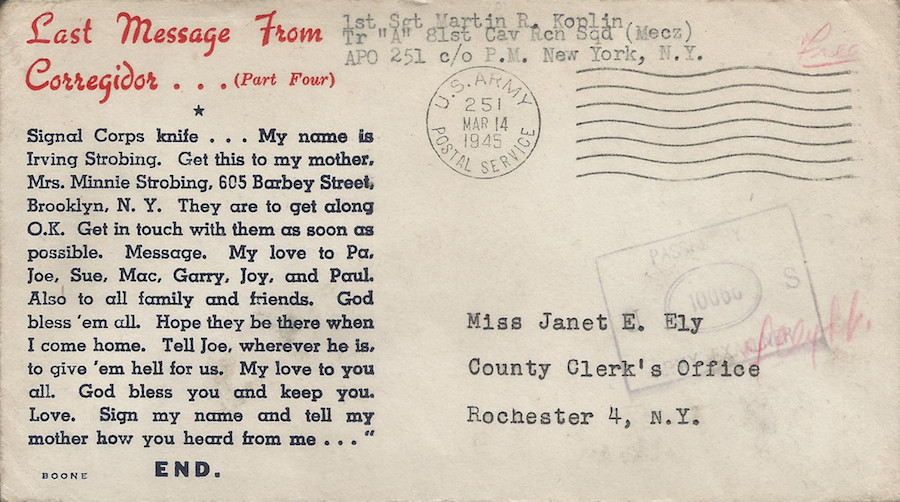 Last Message From
Corregidor . . . (Part Four)
1st Sgt Martin R. Koplin
Tr "A" 81st Cav Rcn Sqd (Mecz)
APO 251 c/o P.M. New York, N.Y.
Free
U.S. ARMY
251
MAR 14
1945
POSTAL SERVICE
Signal Corps knife . . . My name is
Irving Strobing. Get this to my mother,
Mrs. Minnie Strobing, 605 Barbey Street,
Brooklyn, N. Y. They are to get along
O.K. Get in touch with them as soon as
possible. Message. My love to Pa,
Joe, Sue, Mac, Garry, Joy, and Paul.
Also to all family and friends. God
bless 'em all. Hope they be there when
I come home. Tell Joe, wherever he is,
to give 'em hell for us. My love to you
all. God bless you and keep you.
Love. Sign my name and tell my
mother how you heard from me . . ."
END.
BOONE
PASSED
S
Miss Janet E. Ely
County Clerk's Office
Rochester 4, N.Y.